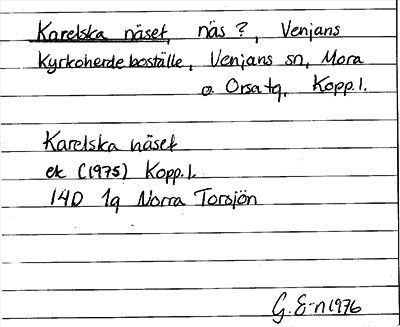 Karelska näset, näs ?, Venjans
Kyrkoherdeboställe, Venjans sn, Mora
o. Orsa tg, Kopp. l.
Karelska näset
ek (1975) Kopp. l.
14D 1q Norra Torsjön
G. E-n 1976